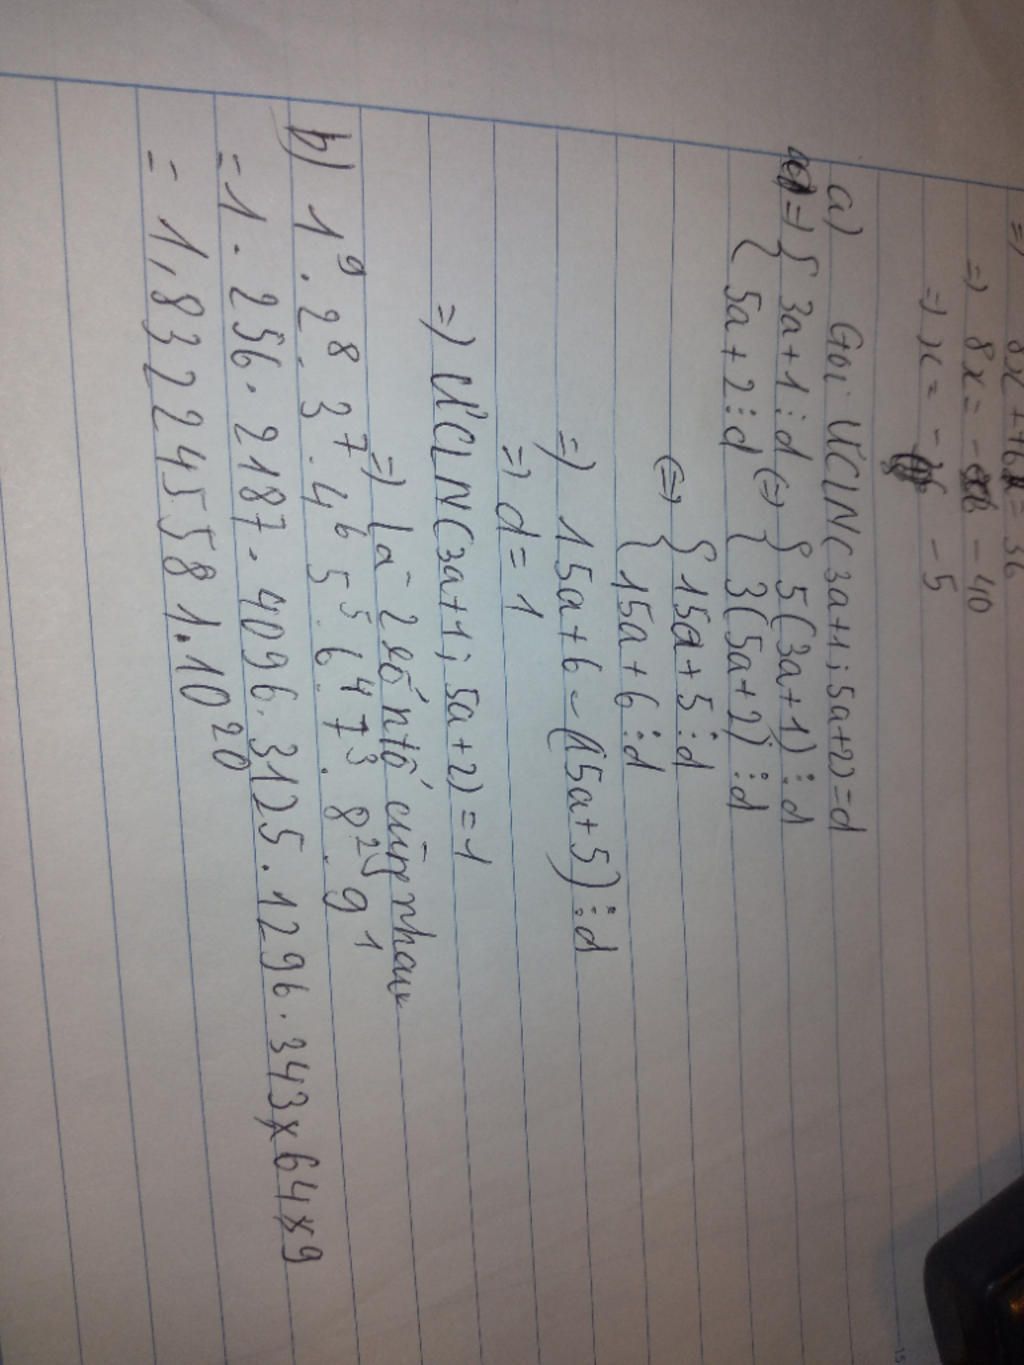 => 8x + 46 = 36
=> 8x = - 40
=> x = - 5
a) Gọi ƯCLN(3a+1; 5a+2)=d
=> { 3a+1⋮d <=> { 5(3a+1)⋮d
{ 5a+2⋮d { 3(5a+2)⋮d
<=> { 15a+5⋮d
{ 15a+6⋮d
=> 15a+6-(15a+5)⋮d
=> d=1
=> ƯCLN(3a+1; 5a+2)=1
=> là 2 số ntố cùng nhau
b) 1⁹.2⁸.3⁷.4⁶.5⁵.6⁴.7³.8².9¹
=1.256.2187.4096.3125.1296.343x64x9
= 1,832245581.10²⁰